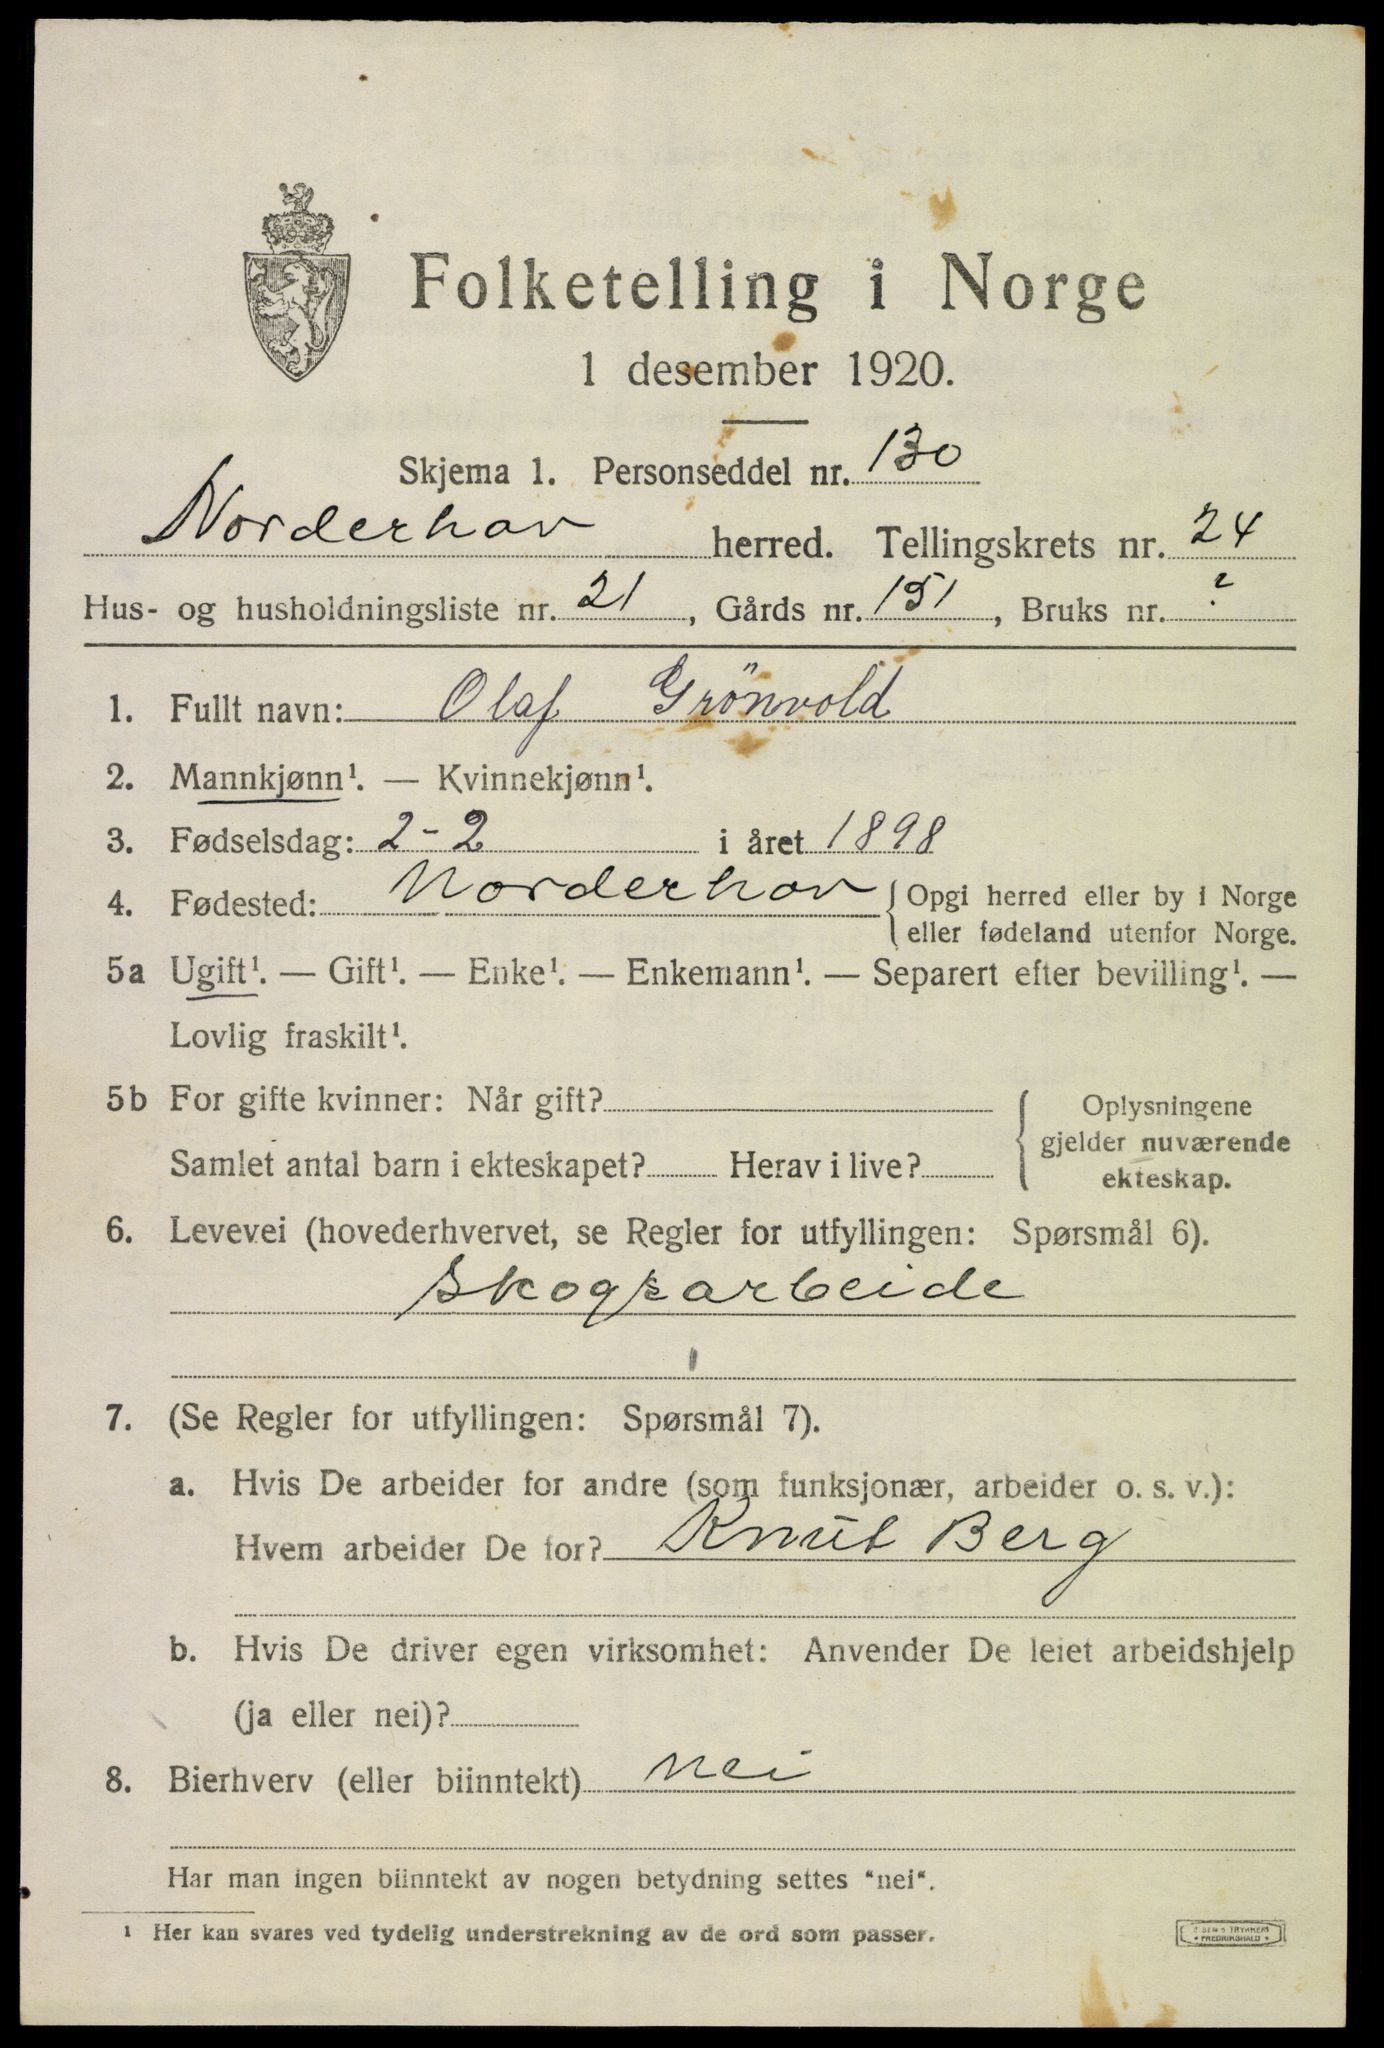 Folketelling i Norge
1 desember 1920.
Skjema 1. Personseddel nr. 130
Norderhov herred. Tellingskrets nr. 24
Hus- og husholdningsliste nr. 21, Gårds nr. 151, Bruks nr. ?
1. Fullt navn: Olaf Grönvold
2. Mannkjønn¹. — Kvinnekjønn¹.
3. Fødselsdag: 2-2 i året 1898
4. Fødested: Norderhov {Opgi herred eller by i Norge
eller fødeland utenfor Norge.
5a Ugift¹. — Gift¹. — Enke¹. — Enkemann¹. — Separert efter bevilling¹. —
Lovlig fraskilt¹.
5b For gifte kvinner: Når gift?
Samlet antal barn i ekteskapet? Herav i live?
Oplysningene
gjelder nuværende
ekteskap.
6. Levevei (hovederhvervet, se Regler for utfyllingen: Spørsmål 6).
Skogsarbeide
7. (Se Regler for utfyllingen: Spørsmål 7).
a. Hvis De arbeider for andre (som funksjonær, arbeider o. s. v.):
Hvem arbeider De for? Knut Berg
b. Hvis De driver egen virksomhet: Anvender De leiet arbeidshjelp
(ja eller nei)?
8. Bierhverv (eller biinntekt) nei
Har man ingen biinntekt av nogen betydning settes “nei“.
¹ Her kan svares ved tydelig understrekning av de ord som passer.
FREDRIKSHALD